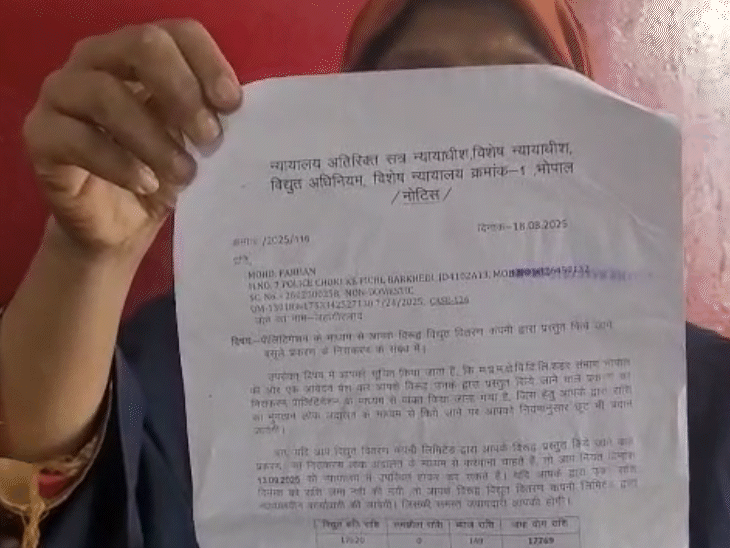 न्यायालय अतिरिक्त सत्र न्यायाधीश,विशेष न्यायाधीश,
विद्युत अधिनियम, विशेष न्यायालय क्रमांक-1 ,भोपाल
/नोटिस/
क्रमांक /2025/116
दिनांक-18.08.2025
प्रति,
MOHD. FARHAN
H.NO. 7 POLICE CHOKI KE PICHE, BARKHEDI,
NON-DOMESTIC
7/24/2025, CASE-126
जोन का नाम-जहांगीराबाद
विषय:-प्रीलिटिगेशन के माध्यम से आपके विरूद्ध विद्युत वितरण कंपनी द्वारा प्रस्तुत किये जाने
वसूली प्रकरण के निराकरण के संबंध में।
उपरोक्त विषय में आपको सूचित किया जाता है, कि म.प्र.म.क्षे.वि.वि.लि.शहर संभाग भोपाल
की ओर एक आवेदन पेश कर आपके विरूद्ध उनके द्वारा प्रस्तुत किये जाने वाले प्रकरण का
निराकरण प्रीलिटिगेशन के माध्यम से चाहा गया है, जिस हेतु आपके द्वारा राशि
का भुगतान लोक अदालत के माध्यम से किये जाने पर आपको नियमानुसार छूट भी प्रदान
की जावेगी।
अतः यदि आप विद्युत वितरण कंपनी लिमिटेड द्वारा आपके विरूद्ध प्रस्तुत किये जाने वाले
प्रकरण का निराकरण लोक अदालत के माध्यम से करवाना चाहते हैं, तो आप नियत दिनांक
13.09.2025 को न्यायालय में उपस्थित होकर कर सकते हैं। यदि आपके द्वारा उक्त राशि
दिनांक को राशि जमा नहीं की गयी तो आपके विरूद्ध विद्युत वितरण कंपनी लिमिटेड द्वारा
न्यायालयीन कार्यवाही की जावेगी। जिसकी समस्त जवाबदारी आपकी होगी।
विद्युत क्षति राशि समझौता राशि ब्याज राशि जमा योग्य राशि
17620 0 149 17769